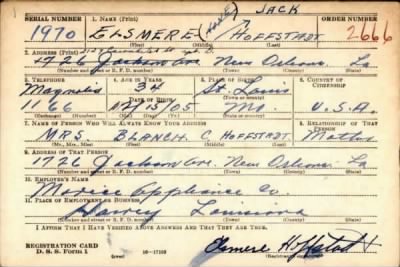 SERIAL NUMBER 1. NAME (Print) JACK ORDER NUMBER
1970 ELSMERE (none) HOFFSTADT 2666
(First) (Middle) (Last)
2. ADDRESS (Print)
1726 Jackson Ave. New Orleans La
(Number and street or R. F. D. number) (Town) (County) (State)
3. TELEPHONE 4. AGE IN YEARS 5. PLACE OF BIRTH 6. COUNTRY OF CITIZENSHIP
Magnolia 34 St. Louis
DATE OF BIRTH (Town or county)
1166 05 Mo. U.S.A.
(Exchange) (Number) (Mo.) (Day) (Yr.) (State or country)
7. NAME OF PERSON WHO WILL ALWAYS KNOW YOUR ADDRESS 8. RELATIONSHIP OF THAT PERSON
MRS. BLANCH. C. HOFFSTADT Mother
(Mr., Mrs., Miss) (First) (Middle) (Last)
9. ADDRESS OF THAT PERSON
1726 Jackson Ave. New Orleans La
(Number and street or R. F. D. number) (Town) (County) (State)
10. EMPLOYER'S NAME
Appliance Co.
11. PLACE OF EMPLOYMENT OR BUSINESS
Harvey Louisiana
(Number and street or R. F. D. number) (Town) (County) (State)
I AFFIRM THAT I HAVE VERIFIED ABOVE ANSWERS AND THAT THEY ARE TRUE.
REGISTRATION CARD
D. S. S. Form 1 (over) 16—17105 Elsmere Hoffstadt
(Registrant's signature)